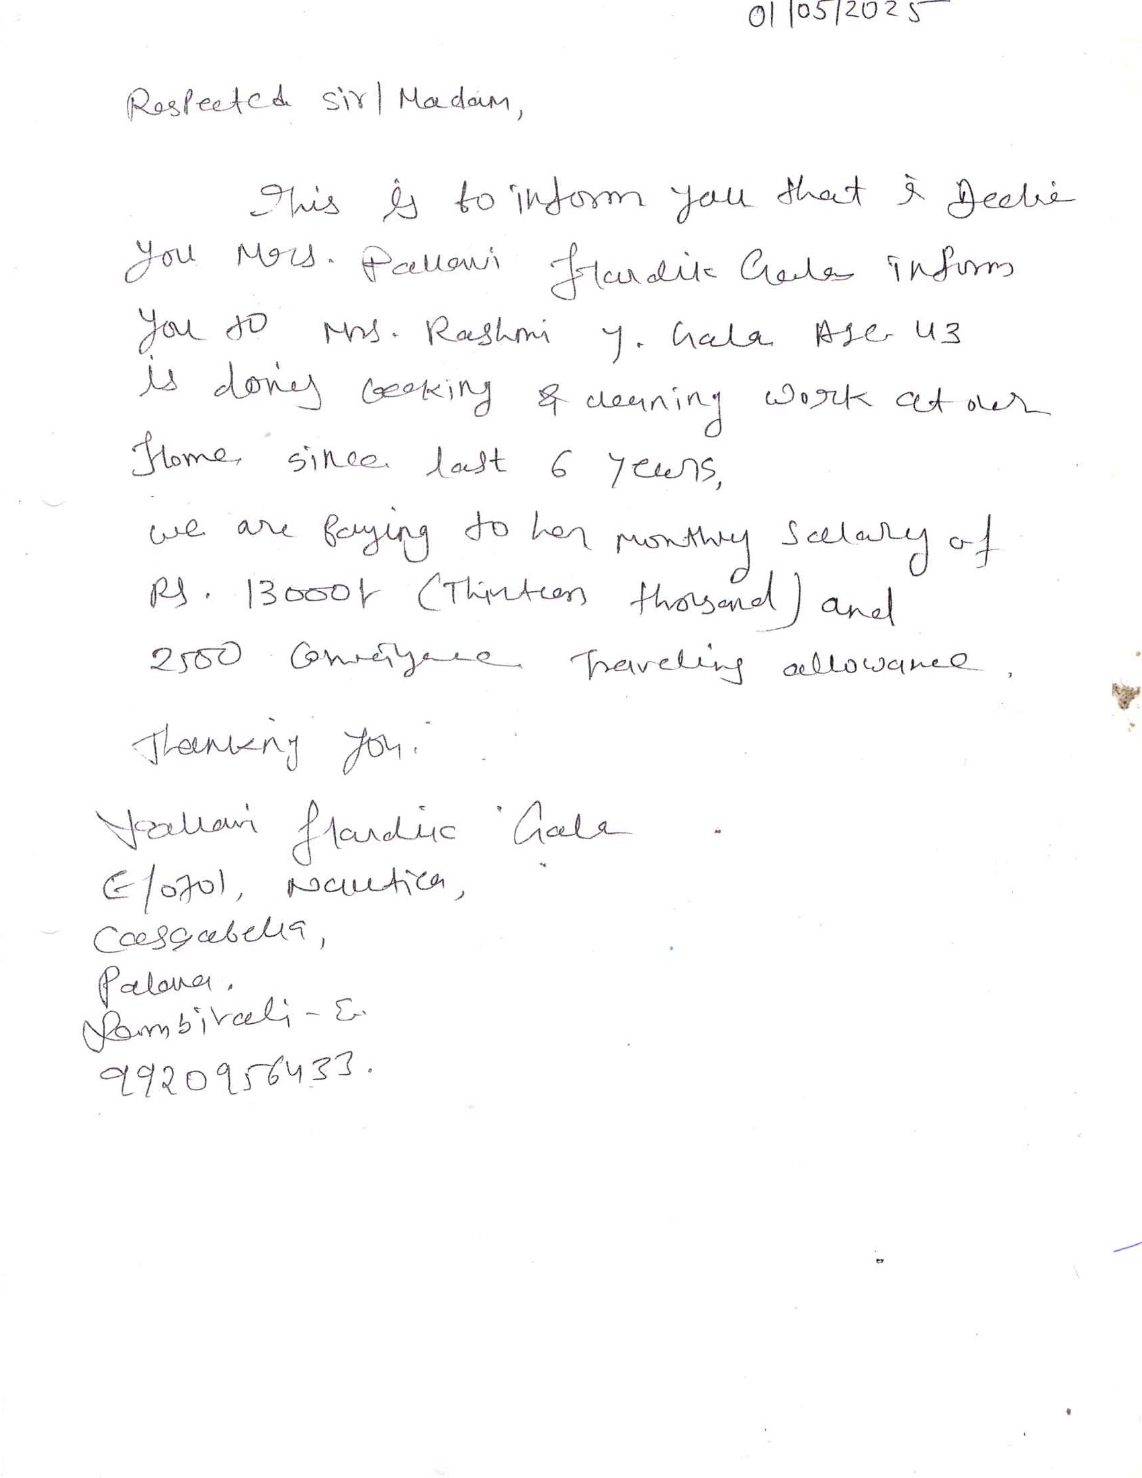 01/05/2025
Respected Sir/Madam,
This is to inform you that I
you Mrs. Pallavi Hardik Gala inform
you to Mrs. Rashmi Y. Gala Age 43
is doing cooking & cleaning work at our
Home, since last 6 years,
we are paying to her monthly salary of
Rs. 13000/- (Thirteen thousand) and
2500 Conveyance Traveling allowance.
Thanking you.
Pallavi Hardik Gala
E/0701, Nautica,
Casabella,
Palava.
Dombivali - E.
9920956433.